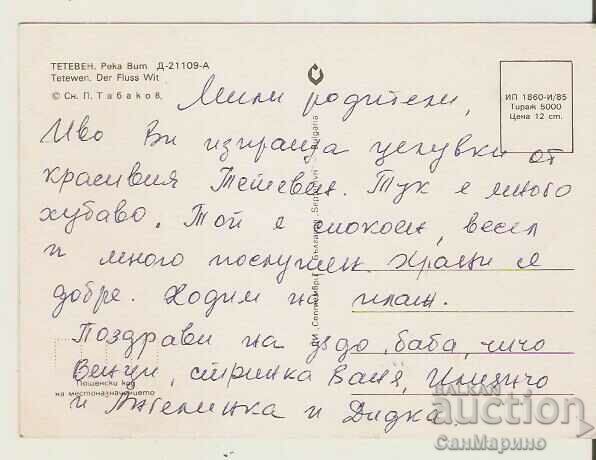 ТЕТЕВЕН. Река Вит. Д-21109-А
Tetewen. Der Fluss Wit
© Сн. П. Табаков,
ИП 1860-И/85
Тираж 5000
Цена 12 ст.
Мили родители,
Иво Ви изпраща целувки от
красивия Тетевен. Тук е много
хубаво. Той е спокоен, весел
и много послушен. Храни се
добре. Ходим на плаж.
Поздрави на дядо, баба, чичо
Венци, стринка Ваня,
и Ангелинка и Дидка
ДИ „Септември“, България Septemvri Bulgaria
Пощенски код
на местоназначението
BALKAN
auction
СанМарино